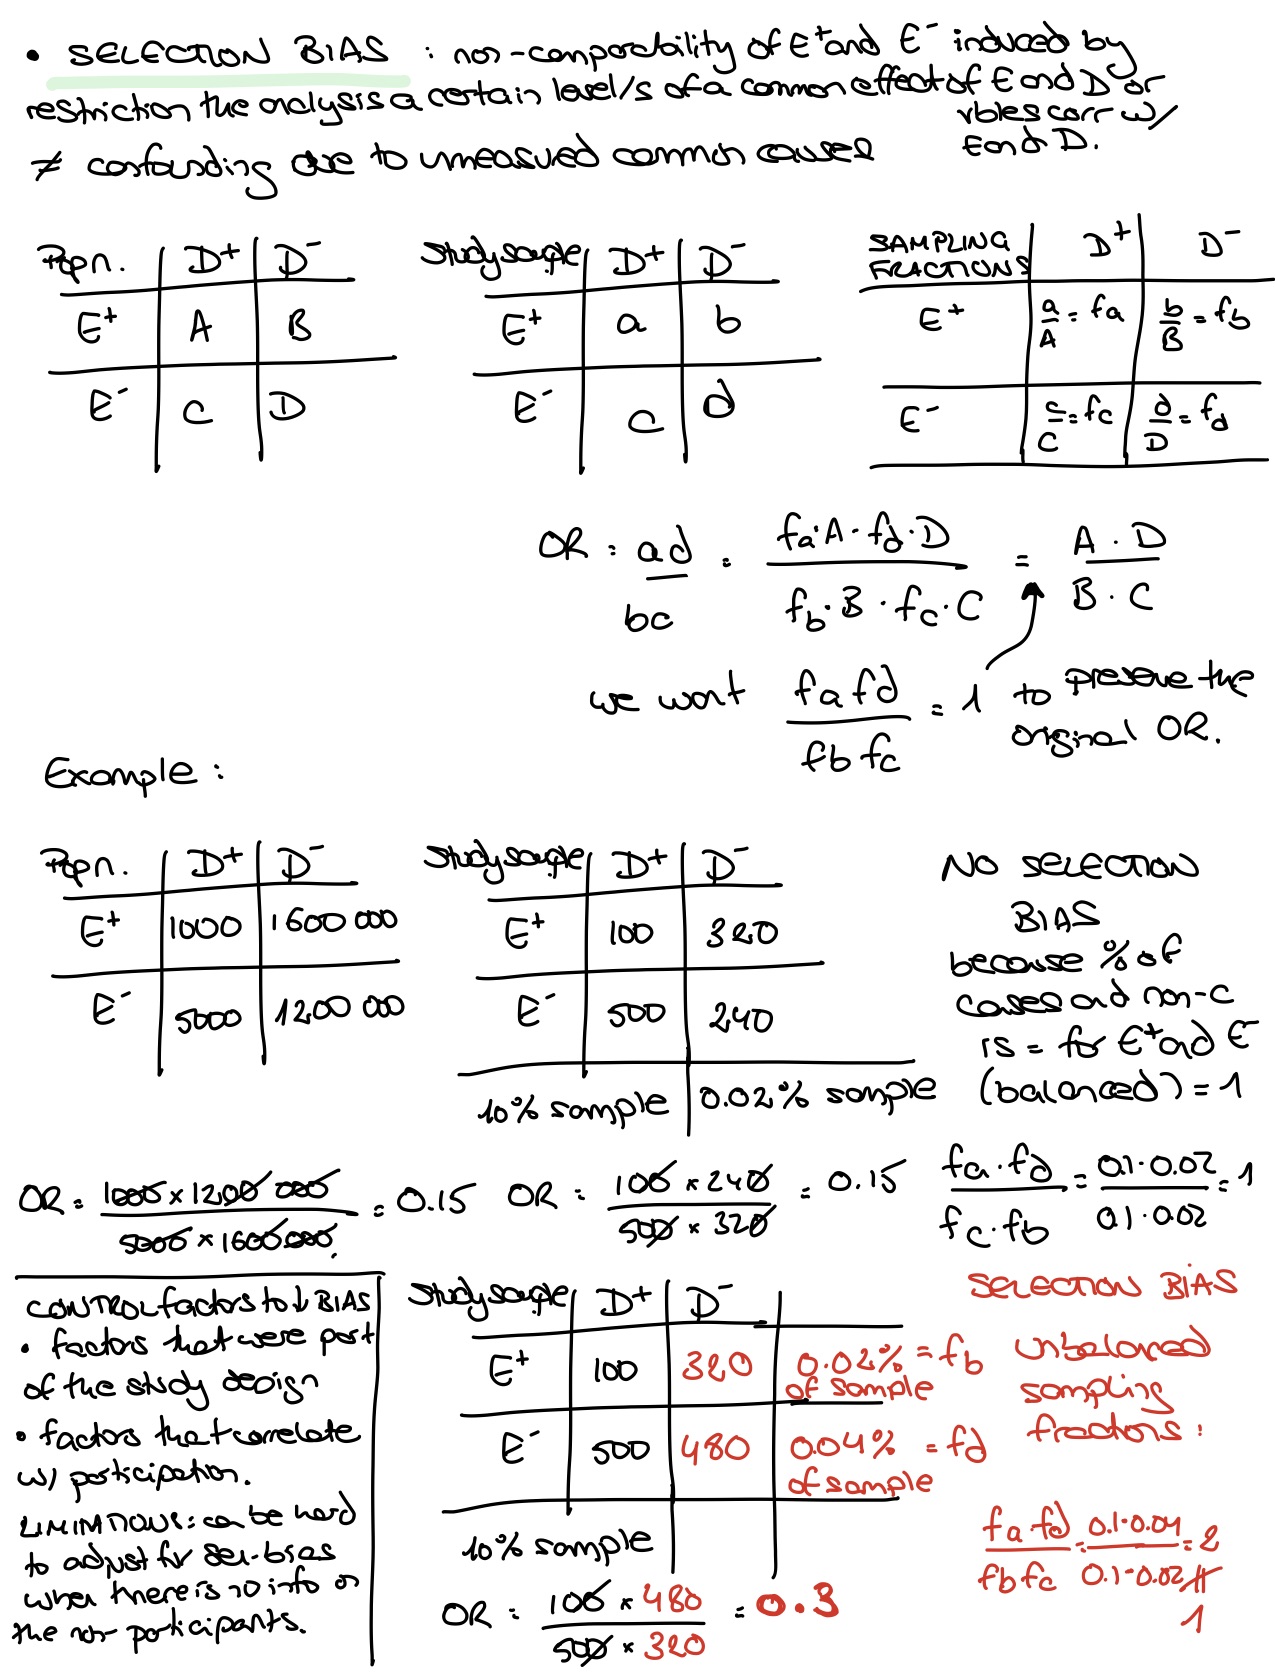 • SELECTION BIAS : non-comparability of E+ and E- induced by
restriction the analysis a certain level/s of a common effect of E and D or
vbles corr w/
E and D.
≠ confounding due to unmeasured common causes
Popn. D+ D-
E+ A B
E- C D
Study sample D+ D-
E+ a b
E- c d
SAMPLING
FRACTIONS D+ D-
E+ a/A = fa b/B = fb
E- c/C = fc d/D = fd
OR = ad/bc = fa·A·fd·D / fb·B·fc·C = A·D / B·C
we want fa fd / fb fc = 1 to preserve the
original OR.
Example :
Popn. D+ D-
E+ 1000 1600 000
E- 5000 1200 000
Study sample D+ D-
E+ 100 320
E- 500 240
10% sample 0.02% sample
NO SELECTION
BIAS
because % of
cases and non-c
is = for E+ and E-
(balanced) = 1
OR = 1000 x 1200 000 / 5000 x 1600.000. = 0.15
OR = 100 x 240 / 500 x 320 = 0.15
fa·fd / fc·fb = 0.1·0.02 / 0.1·0.02 = 1
CONTROL factors to ↓ BIAS
• factors that were part
of the study design
• factors that correlate
w/ participation.
LIMITATIONS: can be hard
to adjust for sel-bias
when there is no info on
the non-participants.
Study sample D+ D-
E+ 100 320 0.02% = fb
of sample
E- 500 480 0.04% = fd
of sample
10% sample
OR = 100 x 480 / 500 x 320 = 0.3
SELECTION BIAS
unbalanced
sampling
fractions :
fa·fd / fb fc = 0.1·0.04 / 0.1·0.02 = 2
≠
1